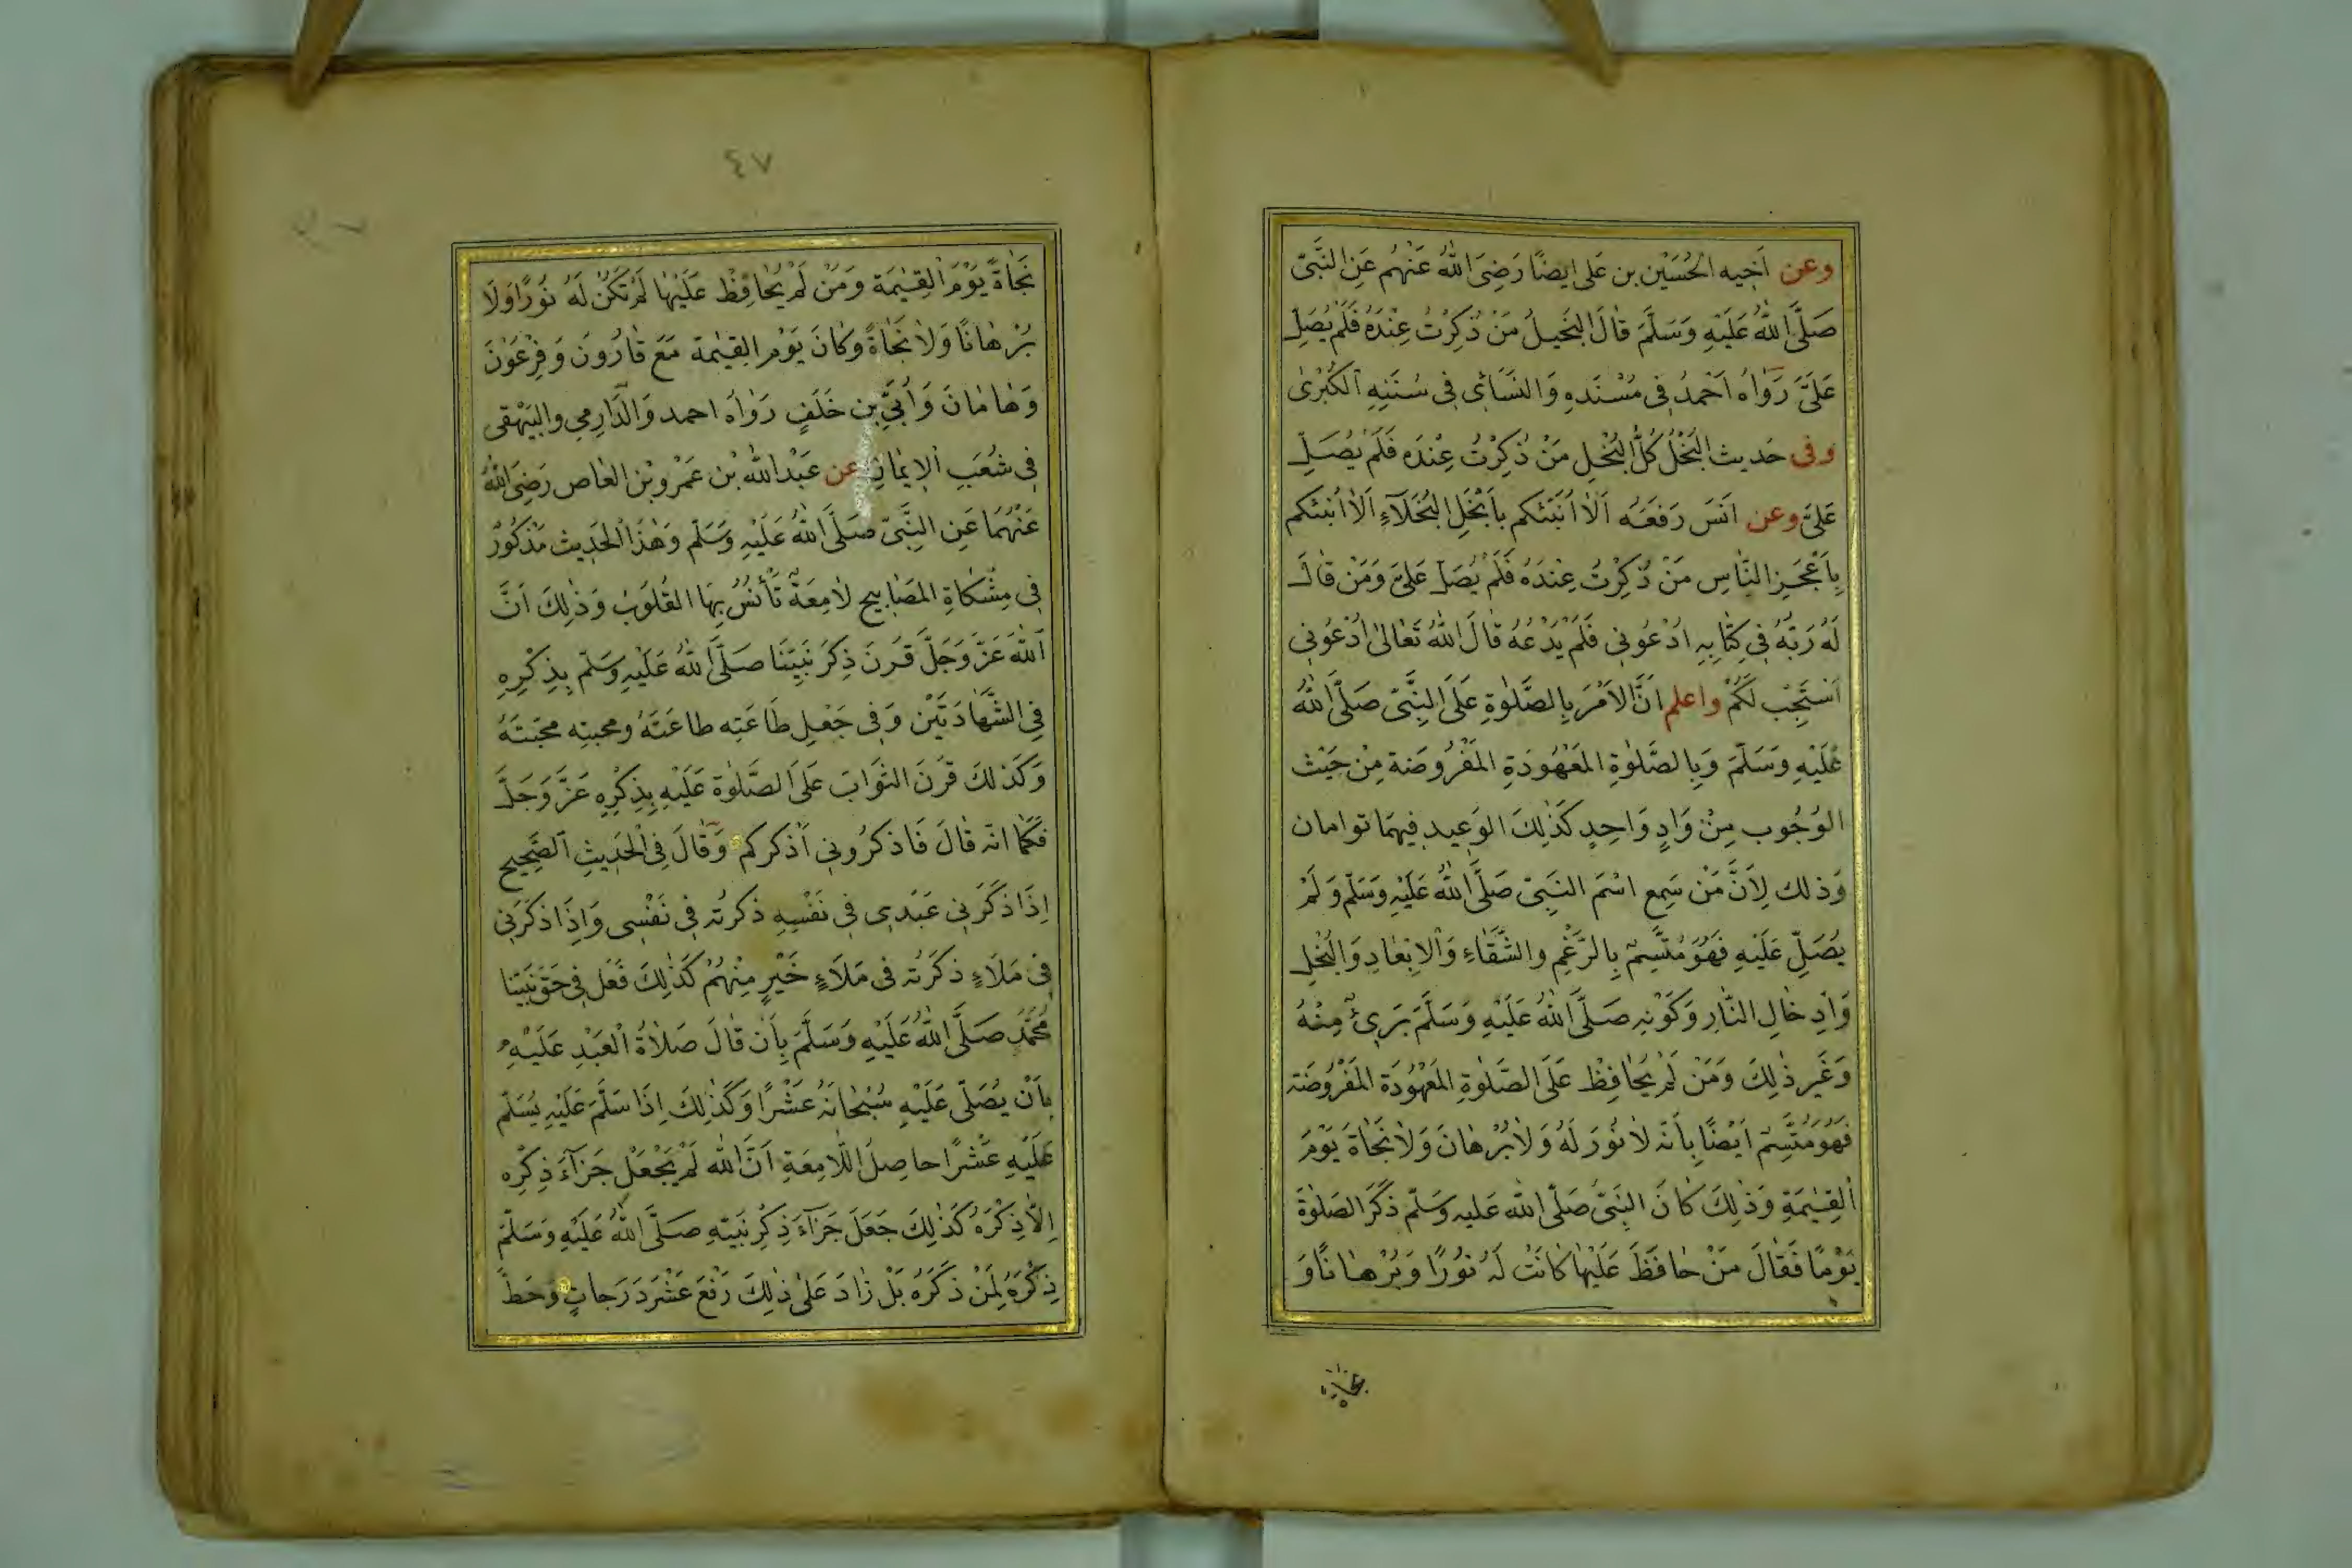 وعن اَخِيه الحُسَيْن بن عَلى ايضًا رَضِىَ اللهُ عَنْهُم عَنِ النَّبِىّ
صَلَّى اللهُ عَلَيْهِ وَسَلَّمَ قَالَ البَخيلُ مَنْ ذُكِرْتُ عِنْدَهُ فَلَمْ يُصَلِّ
عَلَىَّ رَوَاهُ اَحْمدُ فِى مُسْنَدِهِ وَالنَسَائى فِى سُنَنِهِ الكُبْرىٰ
وفى حَديث البُخْلُ كُلُّ البُخْلِ مَنْ ذُكِرْتُ عِنْدَه فَلَمْ يُصَلِّ
عَلىَّ وعن اَنَسَ رَفَعَه اَلاَ اُنَبّئكم بِاَبْخَلِ البُخَلَآءِ اَلاَ اُنَبّئكم
بِاَعْجَزِ النَّاسِ مَنْ ذُكِرْتُ عِنْدَهُ فَلَمْ يُصَلِّ عَلَىَّ وَمَنْ قَالَ
لَهُ رَبُّهُ فِى كِتَابِهِ ادْعُونِى فَلَمْ يَدْعُهُ قَالَ اللهُ تَعَالىٰ اُدْعُونِى
اَسْتَجِبْ لَكُمْ واعلم اَنَّ الاَمْرَ بِالصَّلٰوةِ عَلَى النَّبِىّ صَلَّى اللهُ
عَلَيْهِ وَسَلَّمَ وَبِالصَّلٰوةِ المَعْهُودَةِ المَفْرُوضَة مِنْ حَيْث
الوُجُوب مِنْ وَادٍ وَاحِدٍ كَذٰلِكَ الوَعِيد فِيهمَا توامان
وَذلك لِاَنَّ مَنْ سَمِع اسْمَ النَبِىّ صَلَّى اللهُ عَلَيْهِ وَسَلّم وَلَمْ
يُصَلِّ عَلَيْهِ فَهُوَ مُتَّسِمٌ بِالرَّغْمِ والشَّقَاءِ وَالاِبْعَادِ وَالبُخْلِ
وَاِدخَالِ النَّارِ وَكَوْنِهِ صَلَّى اللهُ عَلَيْهِ وَسَلَّمَ بَرِىءٌ مِنْهُ
وَغَيرِ ذٰلِكَ وَمَنْ لَمْ يُحَافِظْ عَلَى الصَّلٰوةِ المَعْهُودَةِ المَفْرُوضَة
فَهُوَ مُتَّسِمٌ اَيْضًا بِاَنَّه لاَ نُورَ لَهُ وَلاَ بُرْهَانَ وَلاَ نَجَاةَ يَوْمَ
القِيٰمَةِ وَذٰلِكَ كَانَ النَبِىّ صَلَّى الله عَليه وَسَلّم ذَكَرَ الصَلٰوةَ
يَوْمًا فَقَالَ مَنْ حَافَظَ عَلَيْهَا كَانَتْ لَهُ نُورًا وَبُرْهَانًا وَ
نجاة
٤٧
نَجَاةً يَوْمَ القِيٰمَة وَمَنْ لَمْ يُحَافِظْ عَلَيْهَا لَمْ تَكُنْ لَهُ نُورًا وَلاَ
بُرْهَانًا وَلاَ نَجَاةً وَكَانَ يَوْمَ القِيٰمة مَعَ قَارُونَ وَفِرْعَوْنَ
وَهَامَانَ وَاُبَىِّ بن خَلَفٍ رَوَاهُ احمد وَالدَّارِمى والبَيْهَقى
فِى شُعَبِ الاِيمَانِ عن عَبْدِ الله بْن عَمْرو بْن العَاص رَضِىَ اللهُ
عَنْهُمَا عَنِ النَّبِىّ صَلَّى اللهُ عَلَيْهِ وَسَلّم وَهٰذَا الحَدِيث مَذْكُورٌ
فِى مِشْكَاةِ المَصَابيح لاَمِعَةٌ تَأْنسُ بِهَا القُلُوبُ وَذٰلِكَ اَنَّ
اَللهَ عَزَّ وَجَلَّ قَرَنَ ذِكْرَ نَبِيّنَا صَلَّى اللهُ عَلَيْهِ وَسَلّم بِذِكْرِهِ
فِى الشَّهَادَتَيْن وَفِى جَعْلِ طَاعَتِه طاعَتَهُ ومحبته مَحَبَتَهُ
وَكَذلكَ قَرَنَ الثَوَابَ عَلَى الصَّلٰوة عَلَيْهِ بِذِكْرِهِ عَزَّ وَجَلَّ
فَكَمَا انّه قَالَ فَاذكرُونِى اَذكركم وَقَالَ فِى الحَدِيثِ الصَّحِيح
اِذَا ذكَرَنِى عَبْدِى فِى نَفْسِهِ ذكرتُه فِى نَفْسِى وَاِذَا ذكَرَنِى
فِى مَلَاءٍ ذكَرَتُه فى مَلَاءٍ خَيْرٍ مِنْهُمْ كَذٰلِكَ فَعَل فِى حَقّ نَبيّنَا
مُحَمَّد صَلَّى اللهُ عَلَيْهِ وَسَلَّمَ بِاَنْ قَالَ صَلاَةُ العَبْدِ عَلَيْهِ
بِاَنْ يُصَلّى عَلَيْهِ سُبْحَانَهُ عَشْرًا وَكَذٰلِكَ اِذَا سَلَّمَ عَلَيْهِ يُسَلّم
عَلَيْهِ عَشْرًا حاصِلُ اللاَّمِعَةِ اَنَّ الله لَمْ يَجْعَلْ جَزَآءَ ذِكْرِه
اِلاَّ ذِكْرَهُ كَذٰلِكَ جَعَلَ جَزَآءَ ذِكْرِ نَبِيّهِ صَلَّى اللهُ عَلَيْهِ وَسَلّمَ
ذِكْرَهُ لِمَنْ ذَكَرَهُ بَلْ زَادَ عَلىٰ ذٰلِكَ رَفْعَ عَشْرَ دَرَجاتٍ وَحَطَّ